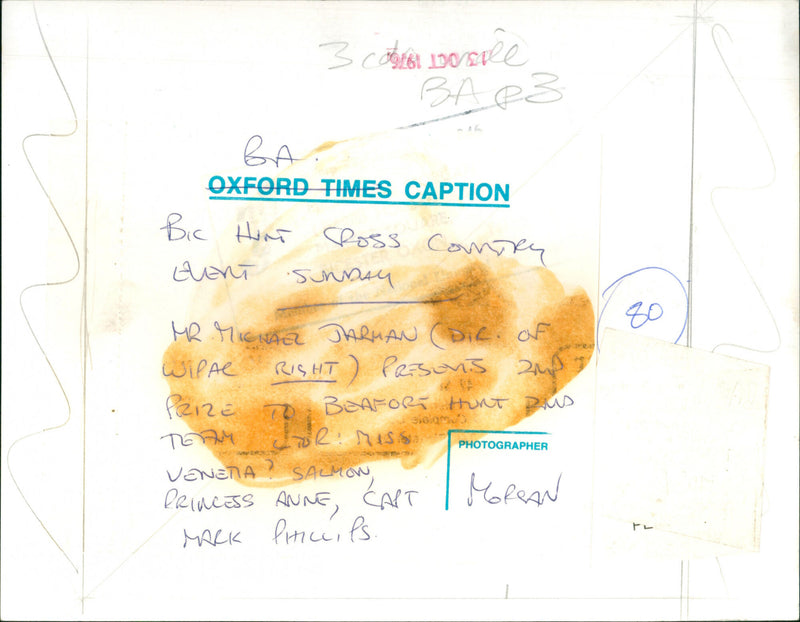 13 OCT 1976
3 cols
BA p3
BA.
OXFORD TIMES CAPTION
BIG HUNT CROSS COUNTRY
EVENT SUNDAY
MR MICHAEL JARMAN (DIR. OF
WIPAC RIGHT) PRESENTS 2ND
PRIZE TO BEAFORT HUNT 2ND
TEAM L TO R: MISS
VENETIA? SALMON,
PRINCESS ANNE, CAPT
MARK PHILLIPS.
PHOTOGRAPHER
MORGAN
80